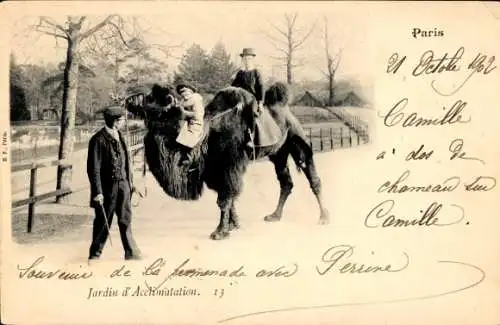 Paris
21 Octobre 1902
Camille
à dos de
chameau sur
Camille
Souvenir de la promenade avec Perrine
Jardin d'Acclimatation. 13